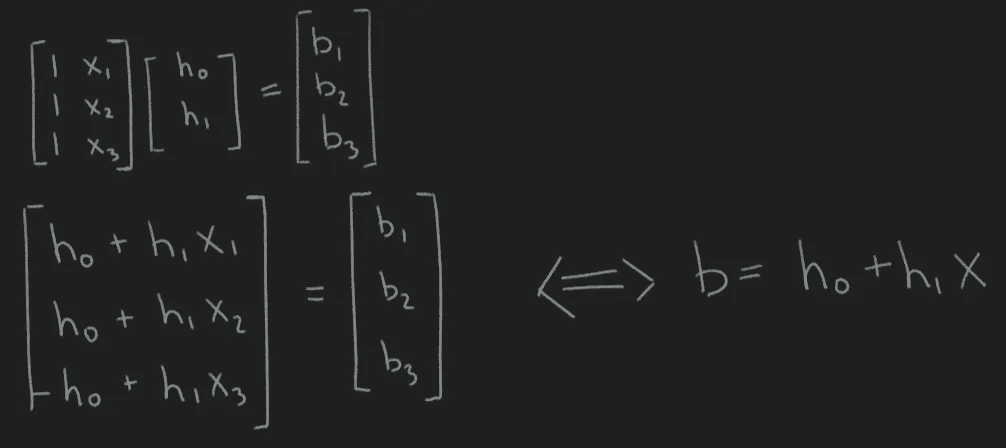 [1 x₁; 1 x₂; 1 x₃] [h₀; h₁] = [b₁; b₂; b₃]
[h₀ + h₁x₁; h₀ + h₁x₂; h₀ + h₁x₃] = [b₁; b₂; b₃] ⟺ b = h₀ + h₁x